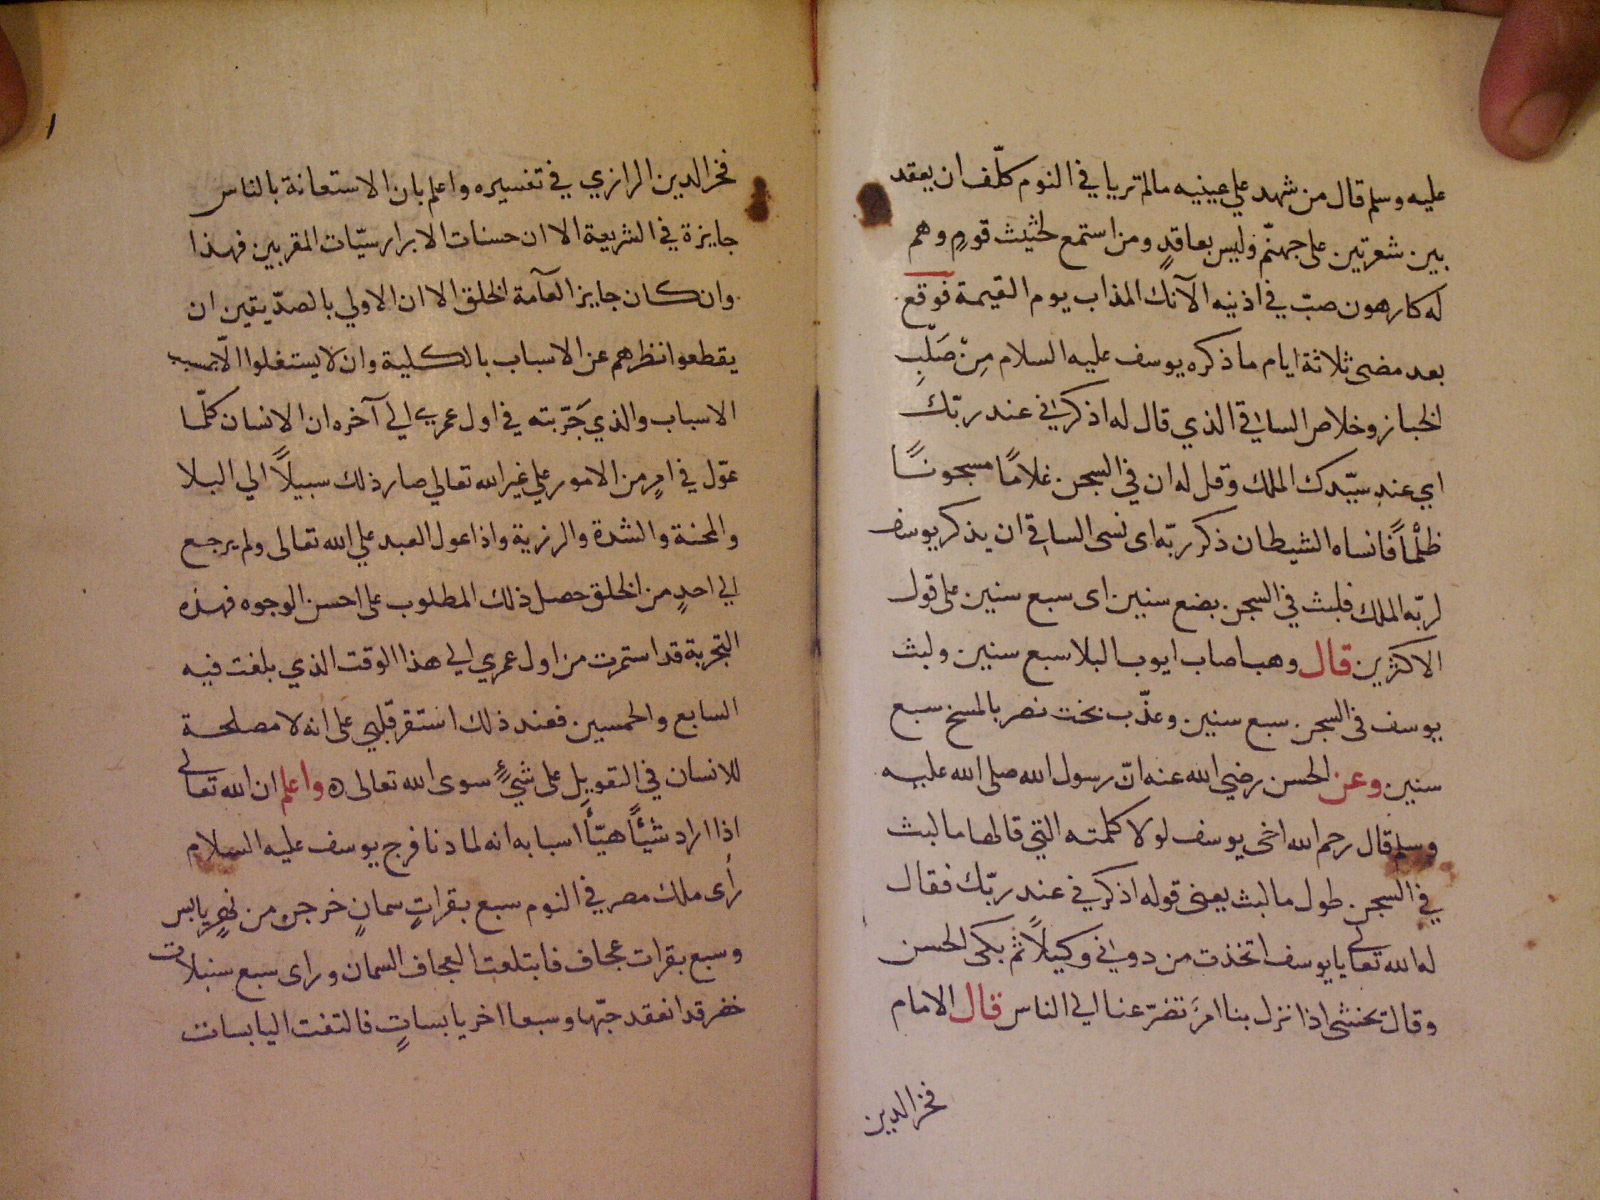 عليه وسلم قال من شهد علي عينيه مالم تريا في النوم كلّف ان يعقد
بين شعرتين على جهنّم وليس بعاقدٍ ومن استمع لحديث قومٍ وهم
له كارهون صبّ في اذنيه الآنك المذاب يوم القيمة فوقع
بعد مضى ثلاثة ايام ما ذكره يوسف عليه السلام مِنْ صَلْبِ
الخباز وخلاص الساقي الذي قال له اذكرني عند ربّك
اي عند سيّدك الملك وقل له ان في السجن غلامًا مسجونًا
ظلمًا فانساه الشيطان ذكر ربّه اى نسى الساقي ان يذكر يوسف
لربّه الملك فلبث في السجن بضع سنين اى سبع سنين على قول
الاكثرين قال وهب اصاب ايوب البلا سبع سنين ولبث
يوسف في السجن سبع سنين وعذّب بخت نصر بالمسخ سبع
سنين وعن الحسن رضي الله عنه انّ رسول الله صلى الله عليه
وسلم قال رحم الله اخى يوسف لولا كلمته التي قالها ما لبث
في السجن طول ما لبث يعنى قوله اذكرني عند ربّك فقال
له الله تعالى يا يوسف اتخذت من دوني وكيلاً ثم بكى الحسن
وقال نحن اذا نزل بنا امرٌ تضرّعنا الي الناس قال الامام
فخر الدين
فخر الدين الرازي في تفسيره واعلم بان الاستعانة بالناس
جايزة في الشريعة الا ان حسنات الابرار سيّات المقربين فهذا
وان كان جايز العآمة الخلق الا ان الاولي بالصدّيقين ان
يقطعوا نظرهم عن الاسباب بالكلية وان لا يستغلوا الّا بمسبب
الاسباب والذي جَرّبته في اول عمري الي آخره ان الانسان كلّما
عوّل في امرٍ من الامور علي غير الله تعالي صار ذلك سبيلاً الي البلا
والمحنة والشدة والرزية واذا عول العبد علي الله تعالى ولم يرجع
الي احدٍ من الخلق حصل ذلك المطلوب على احسن الوجوه فهذه
التجربة قد استمرت من اول عمري الي هذا الوقت الذي بلغت فيه
السابع والخمسين فعند ذلك استقر قلبي على انه لا مصلحة
للانسان في التعويل على شيٍّ سوى الله تعالى واعلم ان الله تعالى
اذا اراد شيْأً هيّأ اسبابه انه لما دنا فرج يوسف عليه السلام
رأى ملك مصر في النوم سبع بقراتٍ سمانٍ خرجن من نهرٍ يابس
وسبع بقرات عجاف فابتلعت العجاف السمان وراى سبع سنبلات
خضر قد انعقد حبّها وسبعا اخر يابساتٍ فالتفت اليابسات